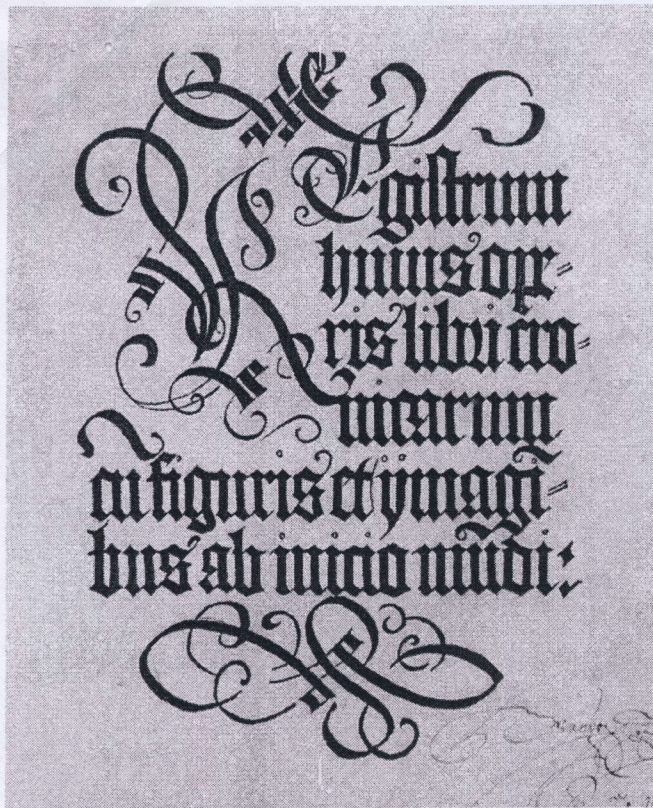 REgistrum
huius ope-
ris libri cro-
nicarum
cū figuris et ÿmagī-
bus ab inicio mūdi: